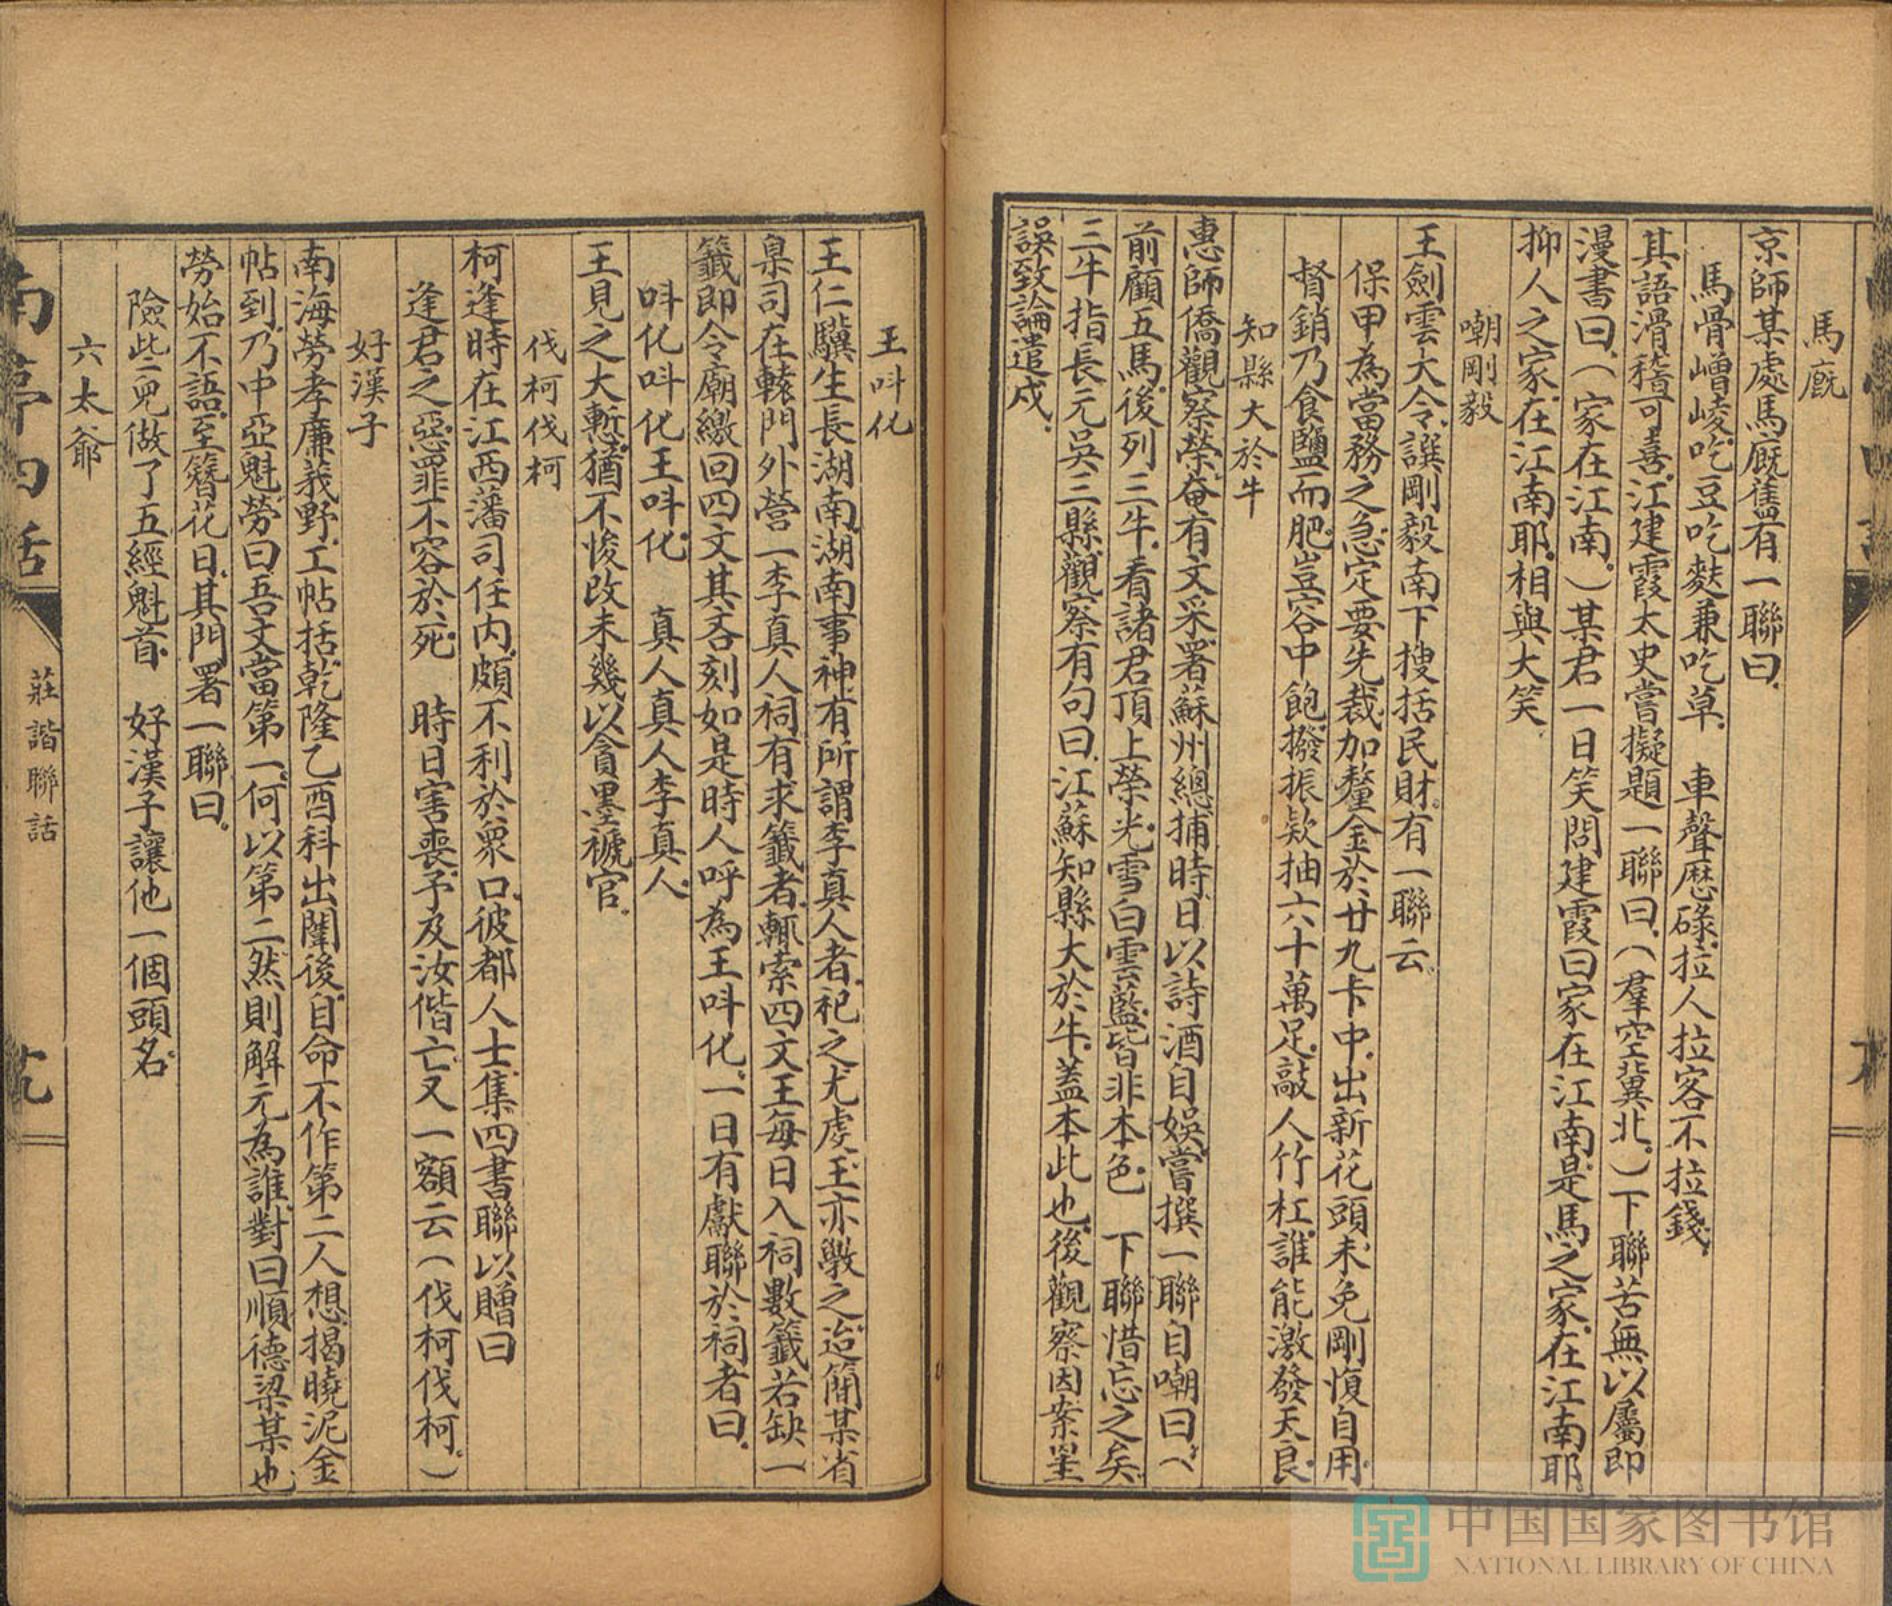 馬廐
京師某處馬廐舊有一聯曰.
馬骨嶒崚.吃豆吃麩兼吃草.　車聲歷碌.拉人拉客不拉錢.
其語滑稽可喜.江建霞太史嘗擬題一聯曰.(羣空冀北.)下聯苦無以屬.即
漫書曰.(家在江南.)某君一日笑問建霞曰.家在江南.是馬之家.在江南耶.
抑人之家.在江南耶.相與大笑.
嘲剛毅
王劍雲大令.譔剛毅南下搜括民財.有一聯云.
保甲為當務之急.定要先裁.加釐金於廿九卡中.出新花頭.未免剛愎自用.
督銷乃食鹽而肥.豈容中飽.撥振欵抽六十萬足.敲人竹杠.誰能激發天良.
知縣大於牛
惠師僑觀察榮.奄有文采.署蘇州總捕時.日以詩酒自娛.嘗撰一聯自嘲曰.(
前顧五馬.後列三牛.看諸君頂上榮光.雪白雲藍.皆非本色.　下聯惜忘之矣.
三牛指長元吳三縣.觀察有句曰.江蘇知縣大於牛.蓋本此也.後觀察因案罣
誤.致論遣戍.
王呌化
王仁驥生長湖南.湖南事神.有所謂李真人者.祀之尤虔.王亦斆之.迨簡某省
臬司.在轅門外營一李真人祠.有求籤者.輒索四文.王每日入祠數籤.若缺一
籤.即令廟繳回四文.其吝刻如是.時人呼為王呌化.一日有獻聯於祠者曰.
呌化呌化王呌化.　真人真人李真人.
王見之大慙.猶不悛改.未幾以貪墨褫官.
伐柯伐柯
柯逢時在江西藩司任內.頗不利於衆口.彼都人士.集四書聯以贈曰
逢君之惡.罪不容於死.　時日害喪.予及汝偕亡.又一額云(伐柯伐柯.)
好漢子
南海勞孝廉莪野.工帖括.乾隆乙酉科出闈後.自命不作第二人想.揭曉泥金
帖到.乃中亞魁.勞曰.吾文當第一.何以第二.然則解元為誰.對曰.順德梁某也
勞始不語.至簪花日.其門署一聯曰.
險些兒做了五經魁首.　好漢子讓他一個頭名.
六太爺
南亭四話
莊諧聯話
中国国家图书馆
NATIONAL LIBRARY OF CHINA